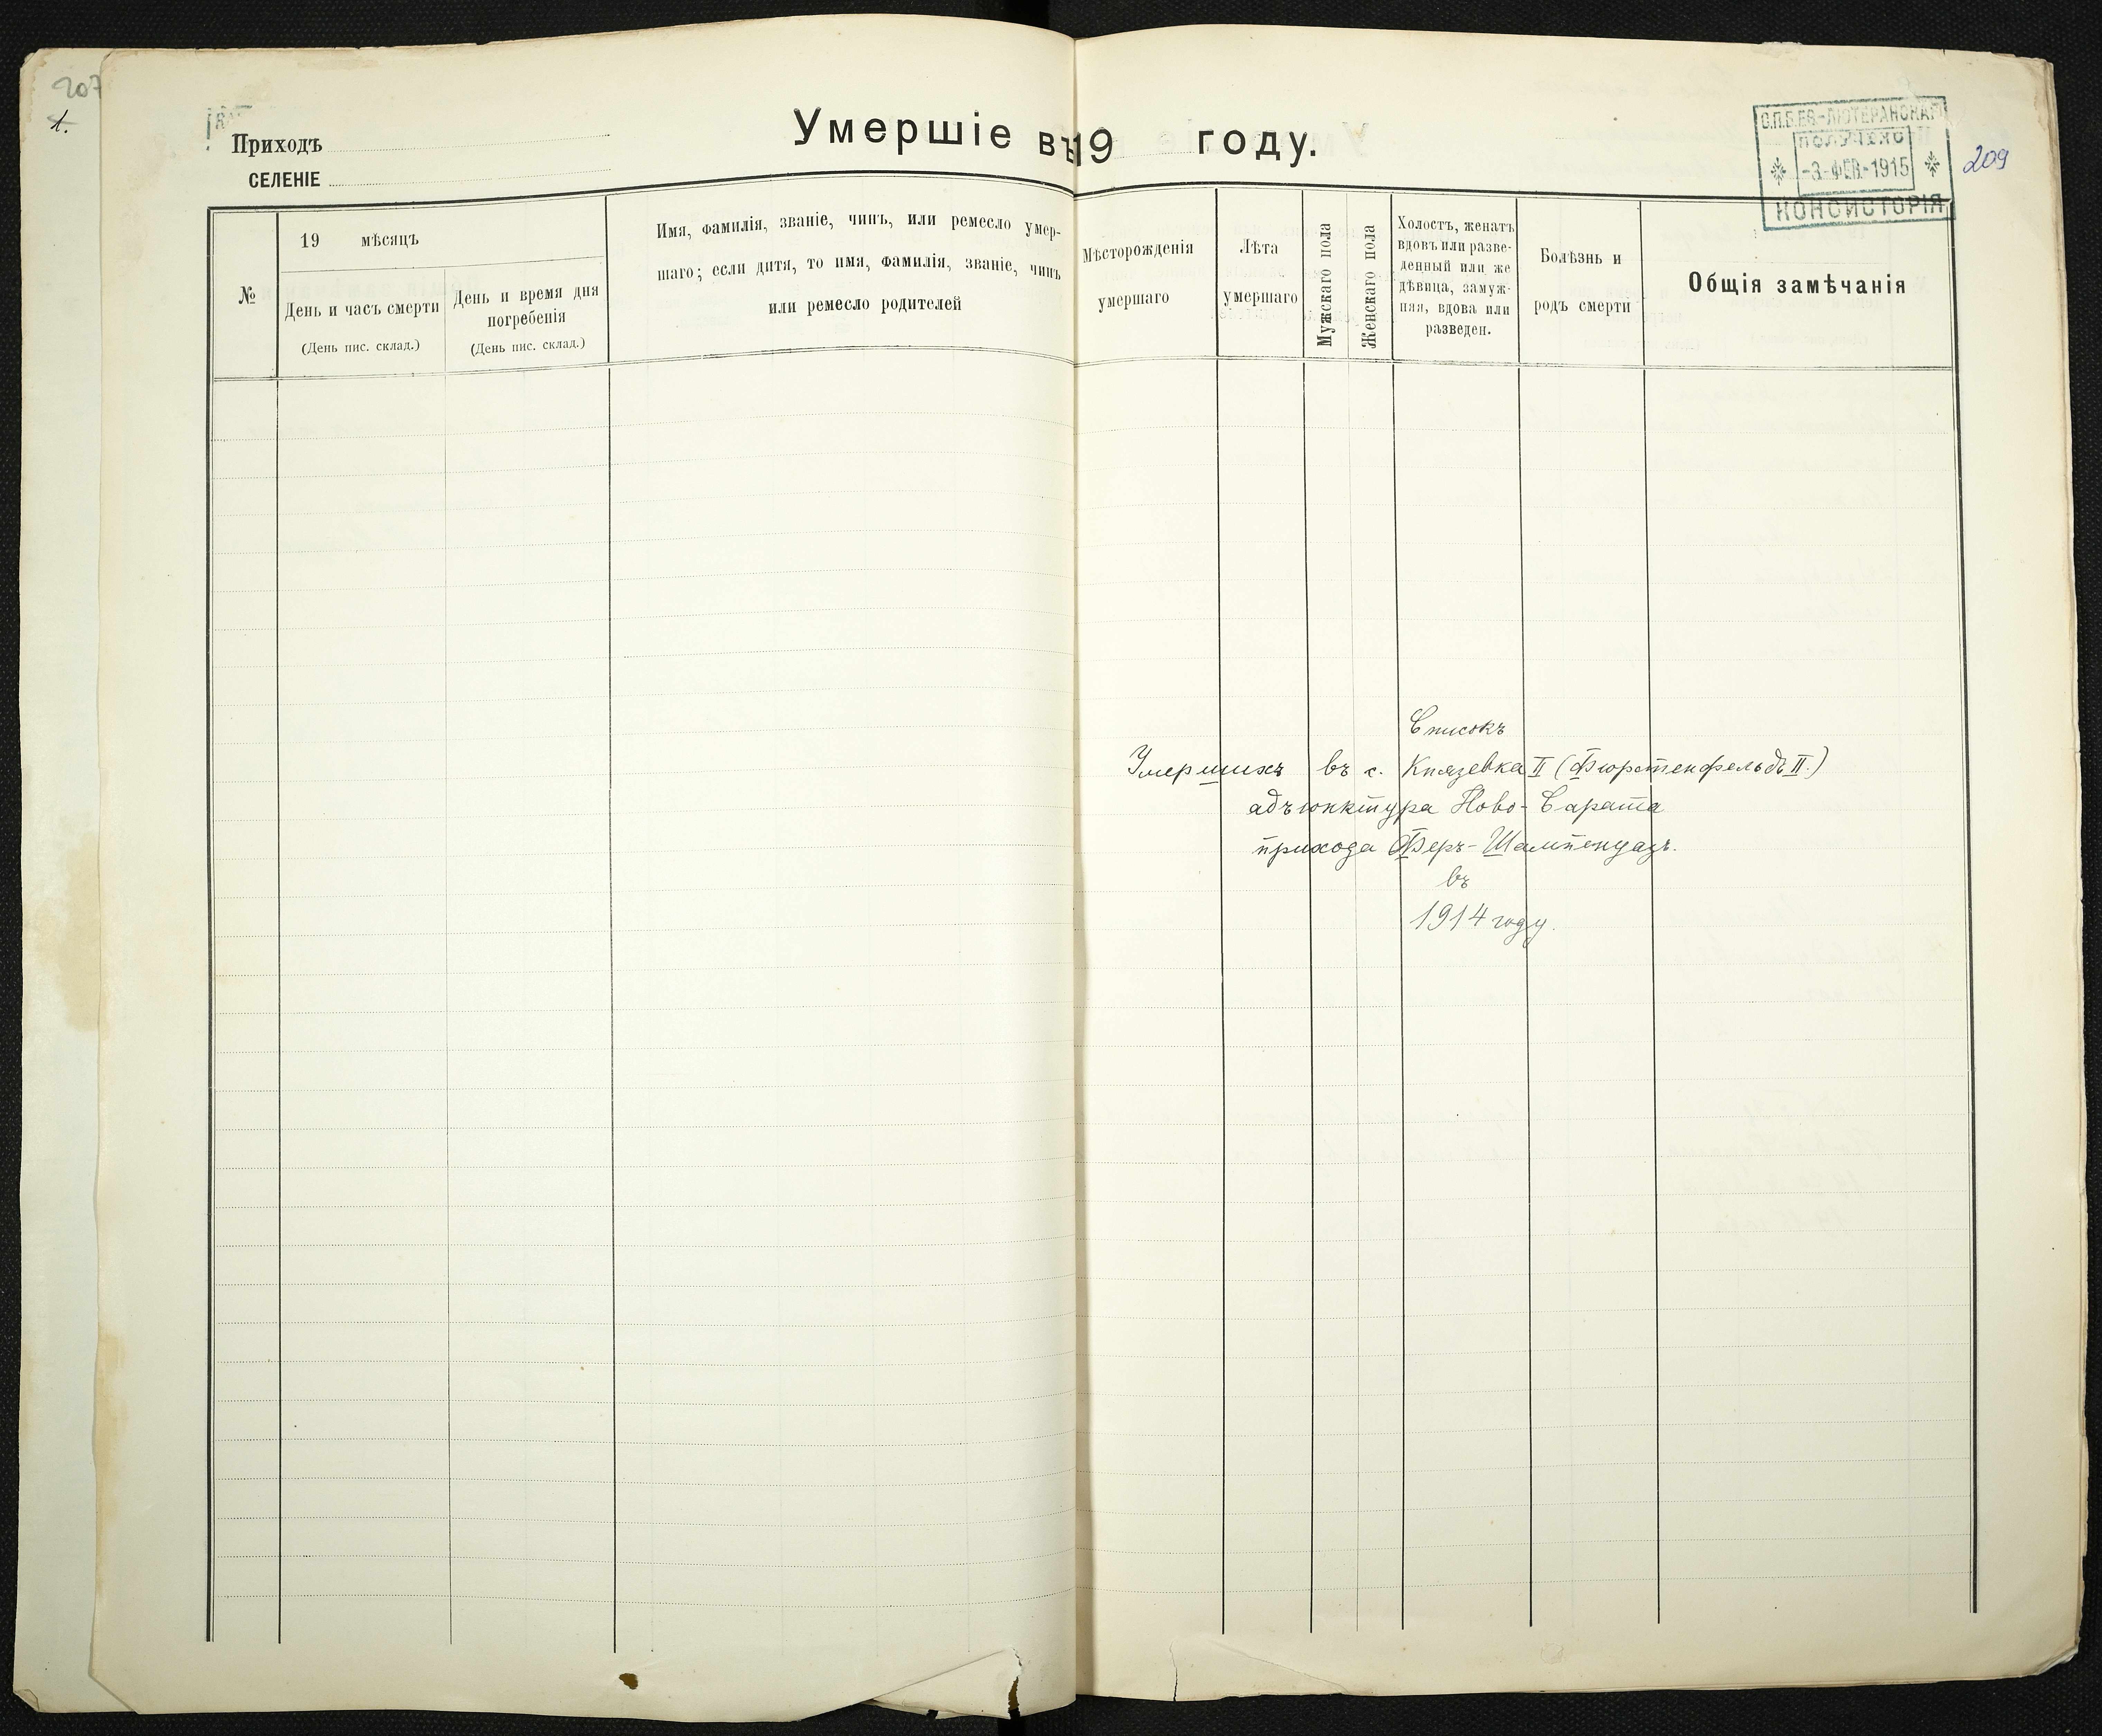 207
1.
Приходъ
СЕЛЕНІЕ
Умершіе въ 19 году.
С.П.Б.ЕВ.-ЛЮТЕРАНСКАЯ
ПОЛУЧЕНО
-3-ФЕВ.-1915
КОНСИСТОРІЯ
209
№
19 мѣсяцъ
День и часъ смерти
(День пис. склад.)
День и время дня
погребенія
(День пис. склад.)
Имя, фамилія, званіе, чинъ, или ремесло умер-
шаго; если дитя, то имя, фамилія, званіе, чинъ
или ремесло родителей
Мѣсторожденія
умершаго
Лѣта
умершаго
Мужскаго пола
Женскаго пола
Холостъ, женатъ
вдовъ или разве-
денный или же
дѣвица, замуж-
няя, вдова или
разведен.
Болѣзнь и
родъ смерти
Общія замѣчанія
Списокъ
Умершихъ въ с. Князевка II (Фюрстенфельдъ II.)
адъюнктура Ново-Сарата
прихода Феръ-Шампенуазъ.
въ
1914 году.